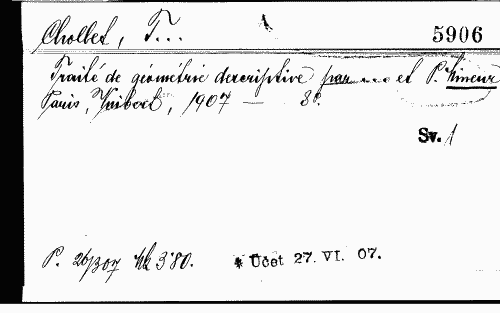 Chollet, T...
5906
Traité de géométrie descriptive par ... et P. Mineur
Paris, Vuibert, 1907 — 8°.
Sv. 1
P. 26/307 Kh 3·80.
* Účet 27. VI. 07.